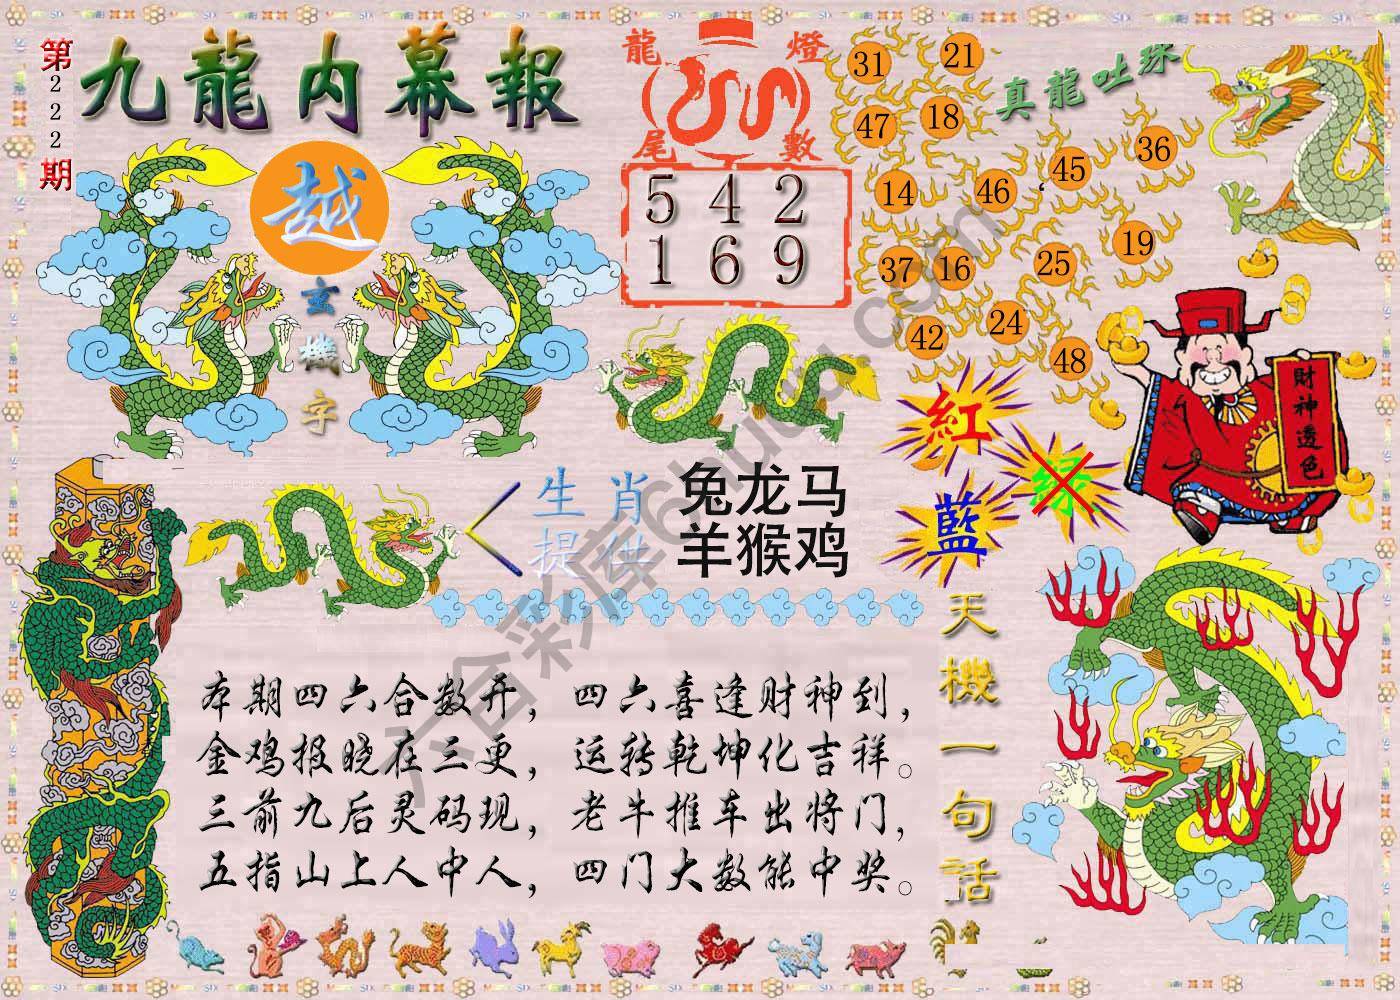 第222期
九龍内幕報
越
玄機字
龍燈尾數
5 4 2
1 6 9
真龍吐珠
31 21
47 18
14 46 45 36
37 16 25 19
42 24 48
財神透色
紅
藍
绿
生肖提供
兔龙马
羊猴鸡
天機一句话
本期四六合数开，四六喜逢财神到，
金鸡报晓在三更，运转乾坤化吉祥。
三前九后灵码现，老牛推车出将门，
五指山上人中人，四门大数能中奖。